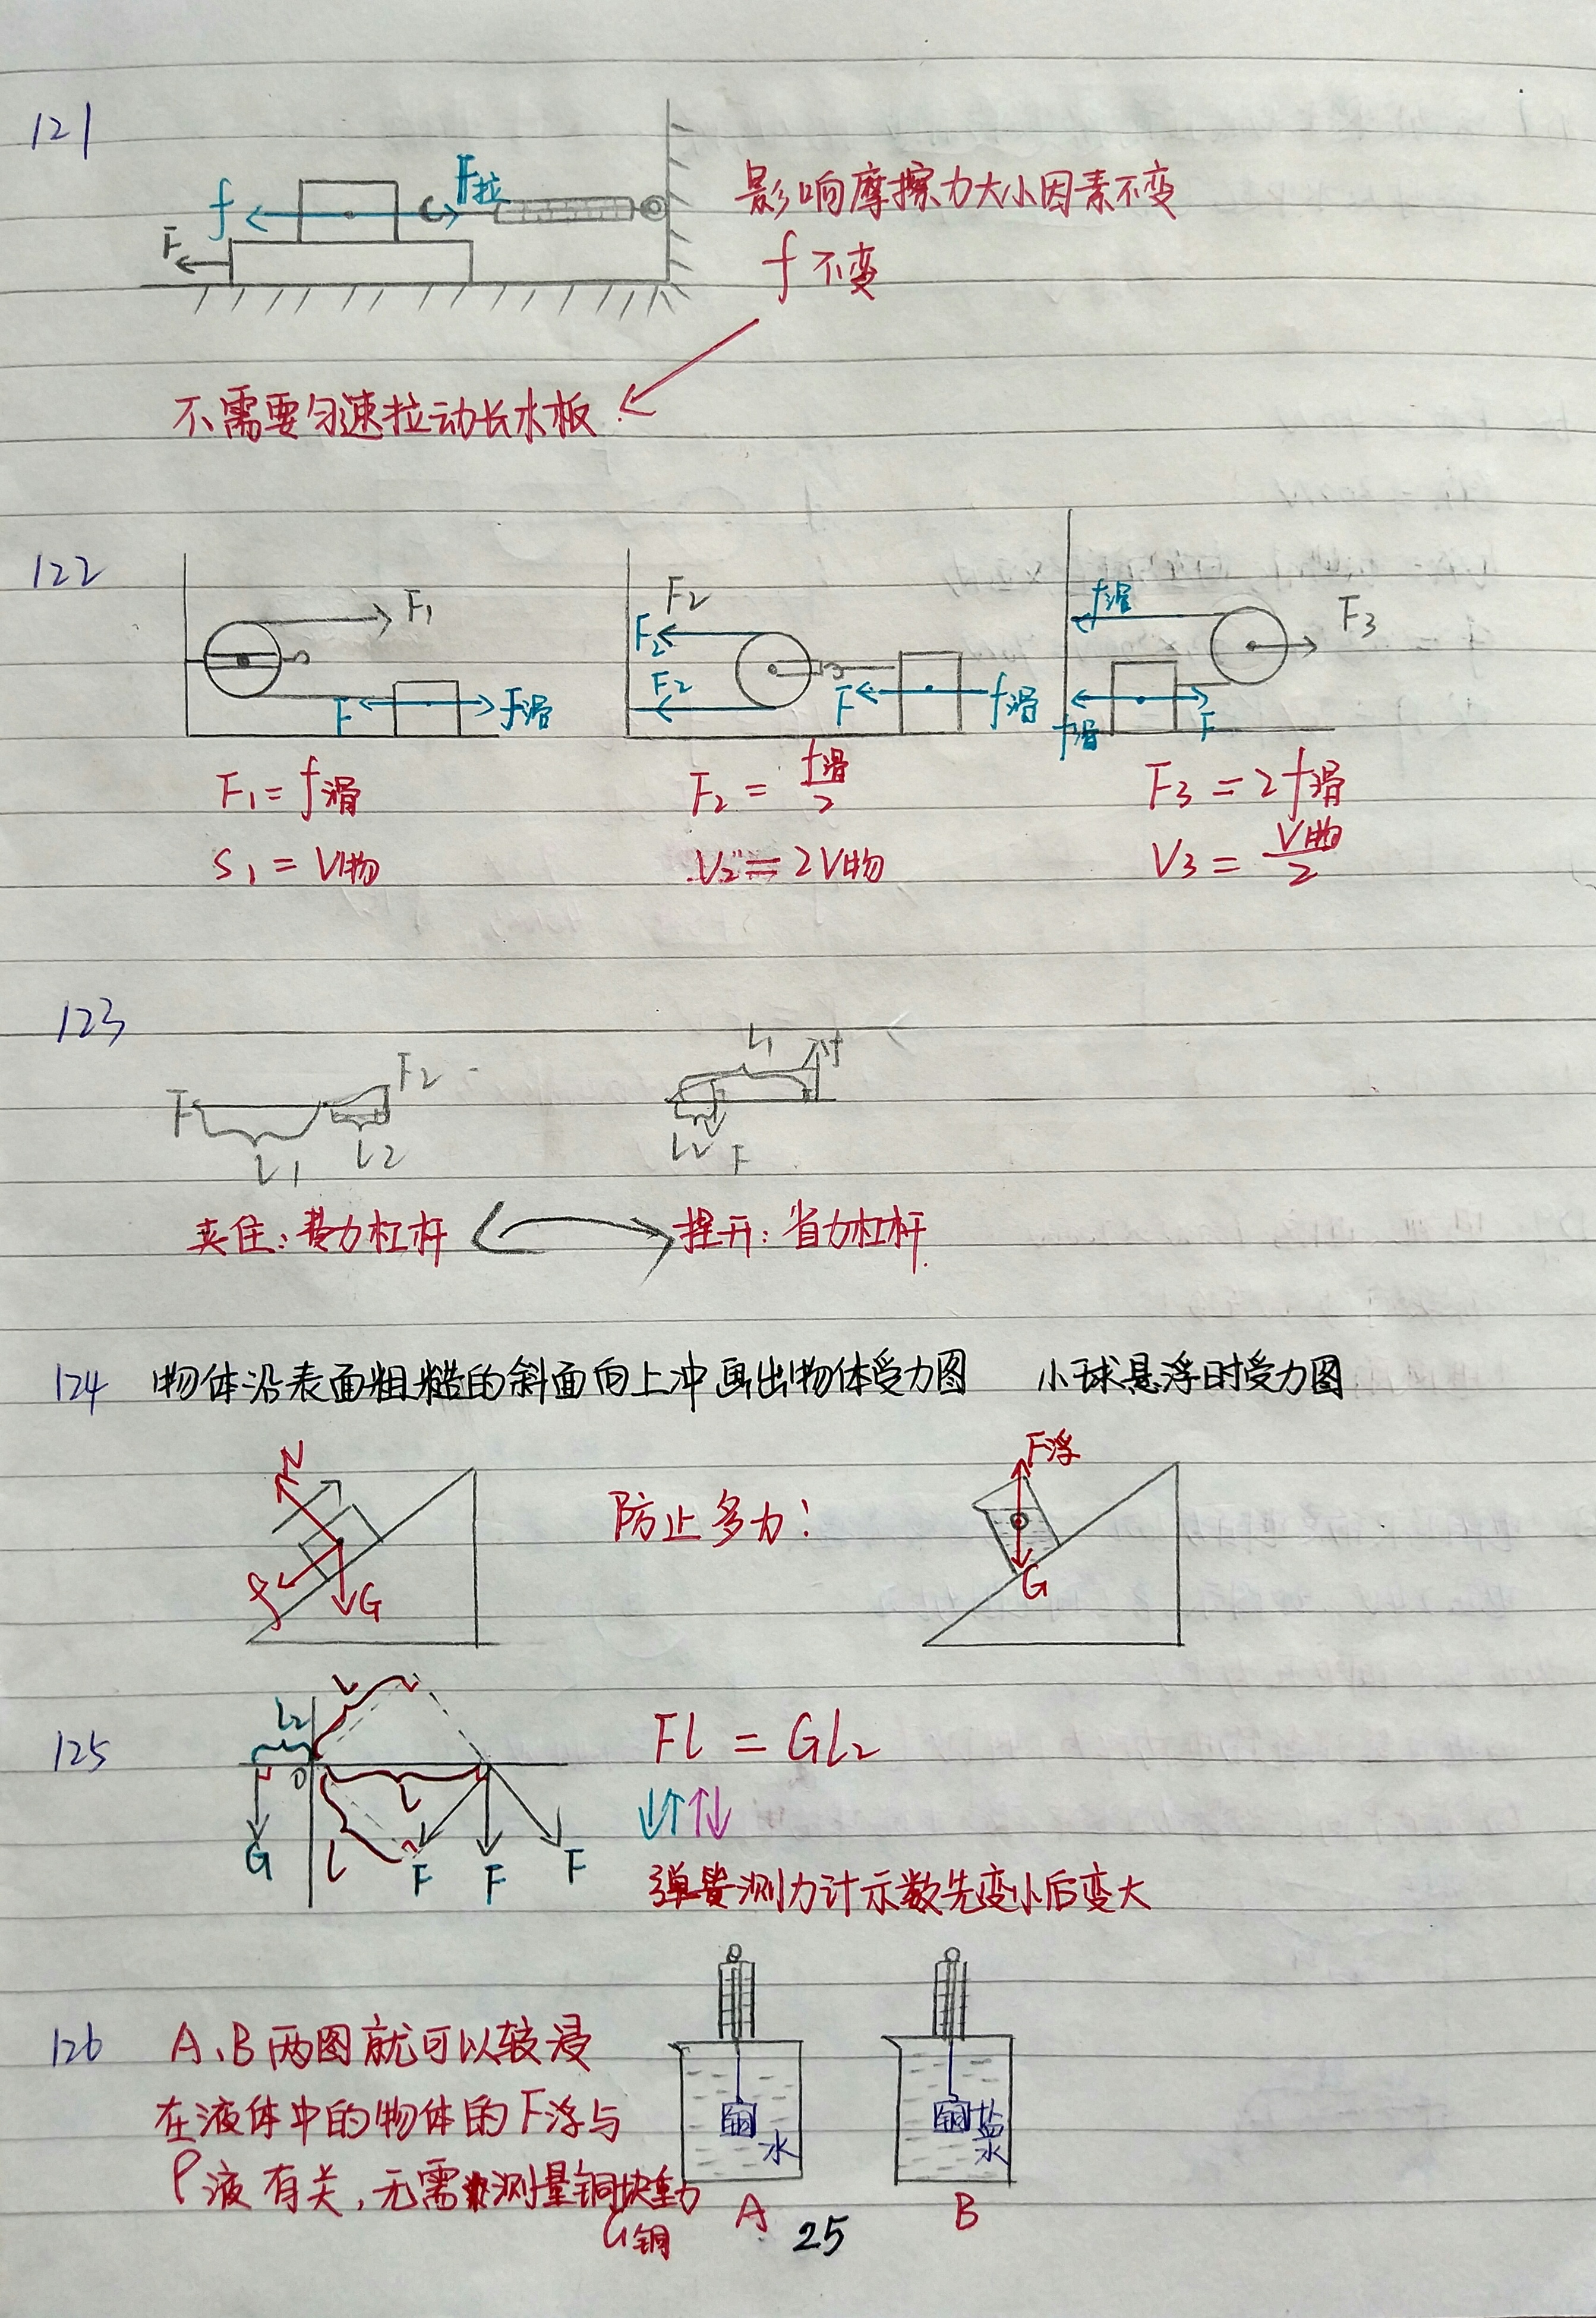 121
f F拉
F
影响摩擦力大小因素不变
f 不变
不需要匀速拉动长木板
122
F1 F f滑
F2 F2 F2 F f滑
f滑 F3 f滑 F
F1 = f滑 F2 = f滑/2 F3 = 2f滑
S1 = V物 V2 = 2V物 V3 = V物/2
123
F L1 L2 F2
L1 f L2 F
夹住:费力杠杆 捏开:省力杠杆
124 物体沿表面粗糙的斜面向上冲画出物体受力图 小球悬浮时受力图
N f G
防止多力!
F浮 G
125
L2 L O L L
G F F F
Fl = Gl2
↓↑↑↓
弹簧测力计示数先变小后变大
126 A、B两图就可以较浸
在液体中的物体的F浮与
ρ液有关,无需测量铜块重力
G铜
铜 水 A
铜 盐水 B
25